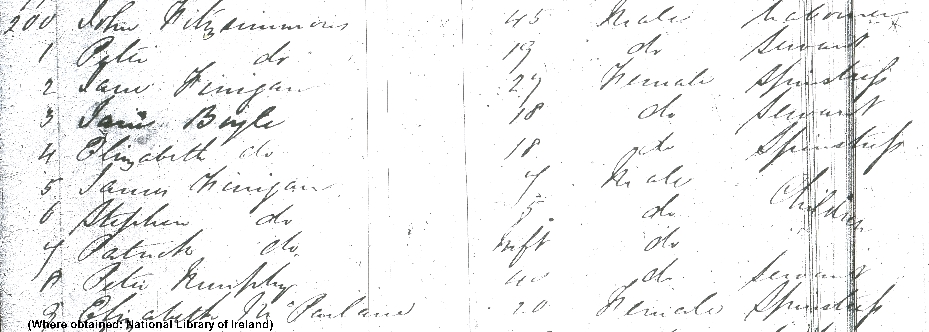 200 John Fitzsimmons 45 Male Labourer
1 Peter do 19 do Servant
2 Jane Finigan 27 Female Spinstress
3 Jane Boyle 18 do Servant
4 Elizabeth do 18 do Spinstress
5 James Finigan 7 Male Children
6 Stephen do 5 do
7 Patrick do Inft do
8 Peter Murphy 40 do Servant
9 Elizabeth McParlane 20 Female Spinstress
(Where obtained: National Library of Ireland)